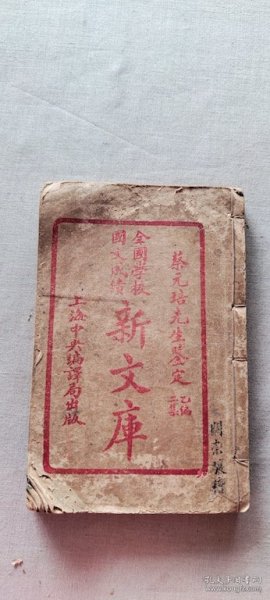 蔡元培先生鑒定
乙編
二集
全國學校
國文成績
新文庫
上海中央編譯局出版